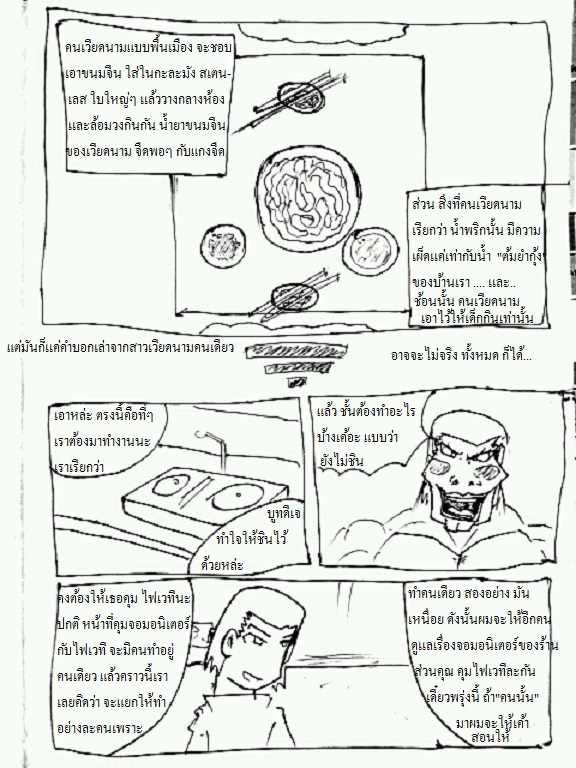 คนเวียดนามแบบพื้นเมือง จะชอบ
เอาขนมจีน ใส่ในกะละมัง สเตน-
เลส ใบใหญ่ๆ แล้ววางกลางห้อง
และล้อมวงกินกัน น้ำยาขนมจีน
ของเวียดนาม จืดพอๆ กับแกงจืด
ส่วน สิ่งที่คนเวียดนาม
เรียกว่า น้ำพริกนั้น มีความ
เผ็ดแค่เท่ากับน้ำ "ต้มยำกุ้ง"
ของบ้านเรา .... และ..
ช้อนนั้น คนเวียดนาม
เอาไว้ให้เด็กกินเท่านั้น
แต่มันก็แค่คำบอกเล่าจากสาวเวียดนามคนเดียว
อาจจะไม่จริง ทั้งหมด ก็ได้...
เอาหล่ะ ตรงนี้คือที่ๆ
เราต้องมาทำงานนะ
เราเรียกว่า
บูทดีเจ
ทำใจให้ชินไว้
ด้วยหล่ะ
แล้ว ชั้นต้องทำอะไร
บ้างเค้อะ แบบว่า
ยังไม่ชิน
คงต้องให้เธอคุม ไฟเวทีนะ
ปกติ หน้าที่คุมจอมอนิเตอร์
กับไฟเวที จะมีคนทำอยู่
คนเดียว แล้วคราวนี้เรา
เลยคิดว่า จะแยกให้ทำ
อย่างละคนเพราะ
ทำคนเดียว สองอย่าง มัน
เหนื่อย ดังนั้นผมจะให้อีกคน
ดูแลเรื่องจอมอนิเตอร์ของร้าน
ส่วนคุณ คุมไฟเวทีละกัน
เดี๋ยวพรุ่งนี้ ถ้า"คนนั้น"
มาผมจะให้เค้า
สอนให้